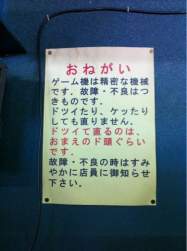 おねがい
ゲーム機は精密な機械
です．故障・不良はつ
きものです．
ドツイたり、ケッたり
しても直りません．
ドツイて直るのは、
おまえのド頭ぐらい
です．
故障・不良の時はすみ
やかに店員に御知らせ
下さい．